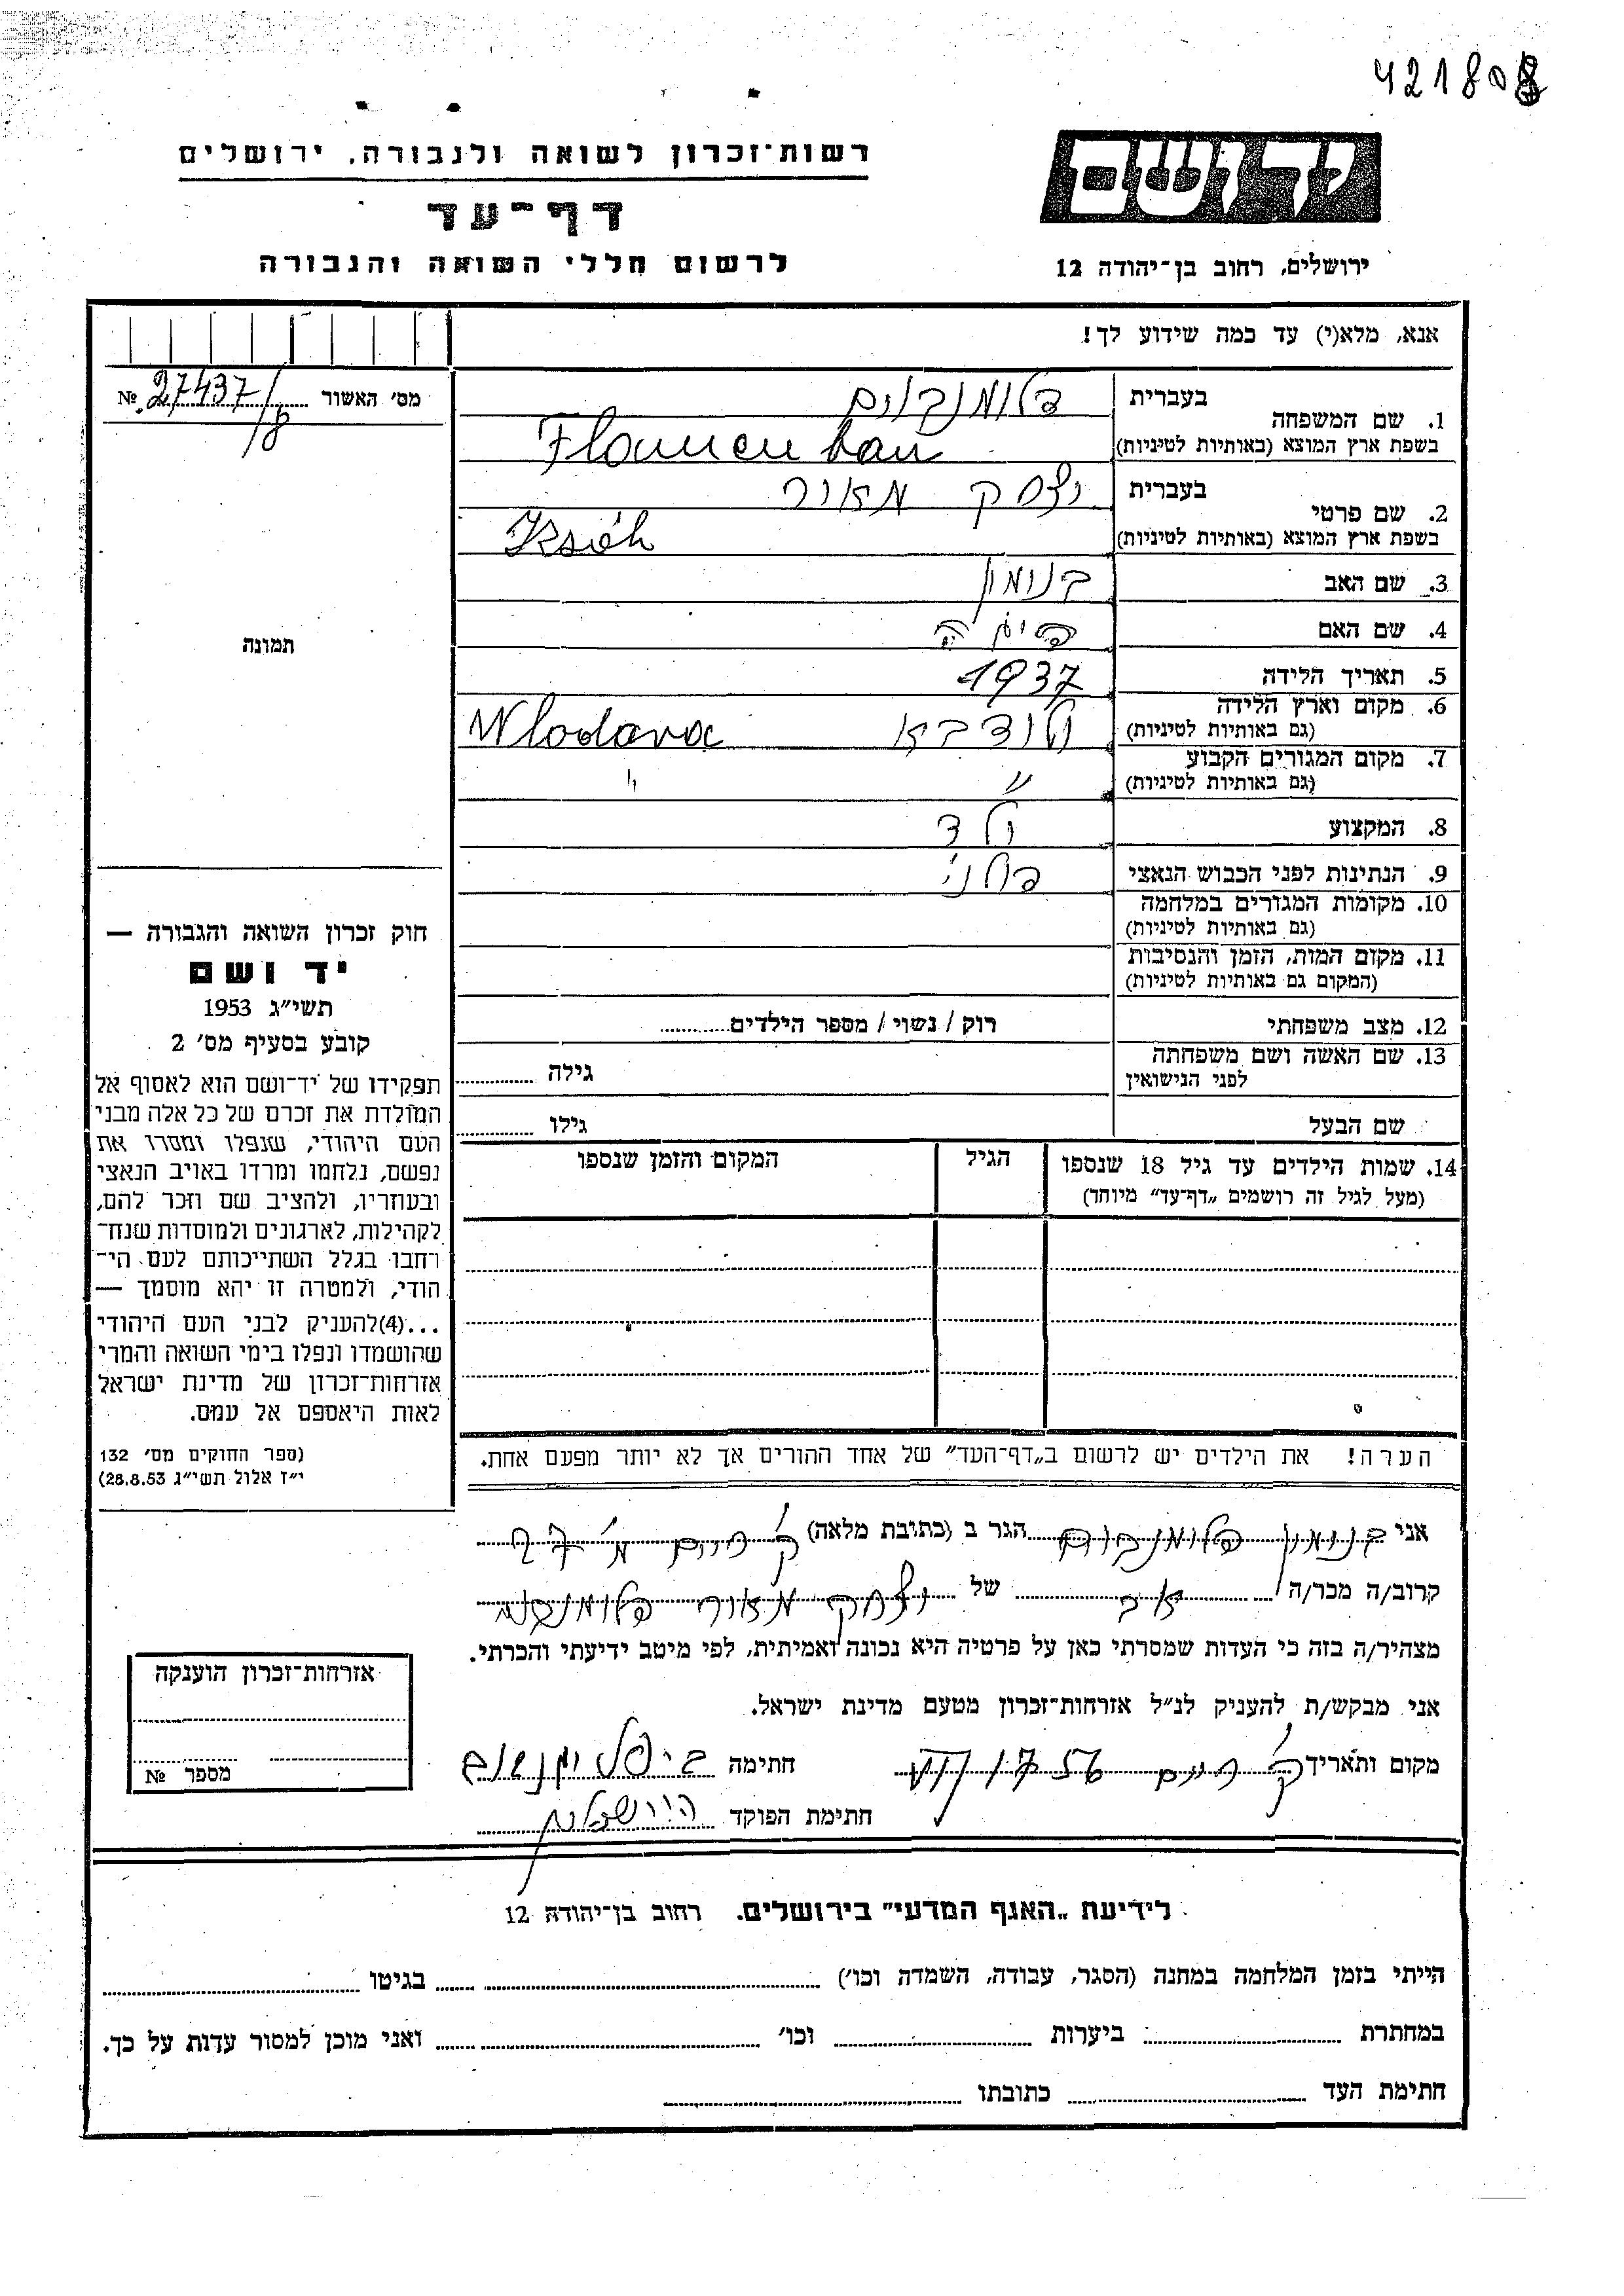 421808
רשות־זכרון לשואה ולגבורה, ירושלים
ידושם
דף־עד
לרשום חללי השואה והגבורה
ירושלים, רחוב בן־יהודה 12
אנא, מלא(י) עד כמה שידוע לך!
מס׳ האשור № 27437/8
תמונה
1. שם המשפחה
בעברית פלומנבוים
בשפת ארץ המוצא (באותיות לטיניות)
2. שם פרטי
בעברית יצחק מאור
בשפת ארץ המוצא (באותיות לטיניות)
3. שם האב בנימין
4. שם האם
5. תאריך הלידה 1937
6. מקום וארץ הלידה
(גם באותיות לטיניות) ולודבא Wlodava
7. מקום המגורים הקבוע
(גם באותיות לטיניות) " "
8. המקצוע ילד
9. הנתינות לפני הכבוש הנאצי פולני
10. מקומות המגורים במלחמה
(גם באותיות לטיניות)
11. מקום המות, הזמן והנסיבות
(המקום גם באותיות לטיניות)
12. מצב משפחתי רוק / נשוי / מספר הילדים
13. שם האשה ושם משפחתה
לפני הנישואין גילה
שם הבעל גילו
14. שמות הילדים עד גיל 18 שנספו
(מעל לגיל זה רושמים „דף־עד” מיוחד)
הגיל
המקום והזמן שנספו
הערה! את הילדים יש לרשום ב„דף־העד” של אחד ההורים אך לא יותר מפעם אחת.
חוק זכרון השואה והגבורה —
יד ושם
תשי״ג 1953
קובע בסעיף מס׳ 2
תפקידו של יד־ושם הוא לאסוף אל
המולדת את זכרם של כל אלה מבני
העם היהודי, שנפלו ומסרו את
נפשם, נלחמו ומרדו באויב הנאצי
ובעוזריו, ולהציב שם וזכר להם,
לקהילות, לארגונים ולמוסדות שנח־
רחבו בגלל השתייכותם לעם הי־
הודי, ולמטרה זו יהא מוסמך —
...(4)להעניק לבני העם היהודי
שהושמדו ונפלו בימי השואה והמרי
אזרחות־זכרון של מדינת ישראל
לאות היאספם אל עמם.
(ספר החוקים מס׳ 132
י״ז אלול תשי״ג 28.8.53)
אני בנימין פלומנבוים הגר ב (כתובת מלאה) ק׳ חיים
קרוב/ה מכר/ה אב של יצחק מאור פלומנבוים
מצהיר/ה בזה כי העדות שמסרתי כאן על פרטיה היא נכונה ואמיתית, לפי מיטב ידיעתי והכרתי.
אני מבקש/ת להעניק לנ״ל אזרחות־זכרון מטעם מדינת ישראל.
מקום ותאריך ק׳ חיים חתימה
חתימת הפוקד
אזרחות־זכרון הוענקה
מספר №
לידיעת „האגף המדעי” בירושלים, רחוב בן־יהודה 12
הייתי בזמן המלחמה במחנה (הסגר, עבודה, השמדה וכו׳) בגיטו
במחתרת ביערות וכו׳ ואני מוכן למסור עדות על כך.
חתימת העד כתובתו